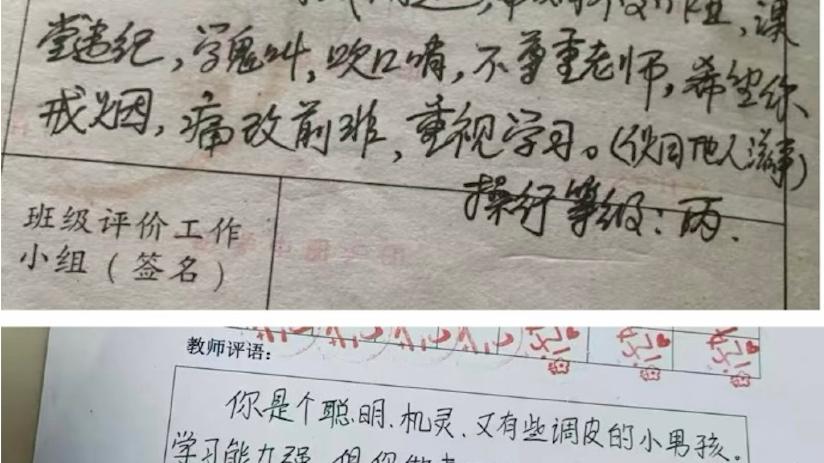 课
堂违纪，学鬼叫，吹口哨，不尊重老师，希望你
戒烟，痛改前非，重视学习。（伙同他人滋事）
操行等级：丙.
班级评价工作
小组（签名）
教师评语：
你是个聪明、机灵、又有些调皮的小男孩。
学习能力强